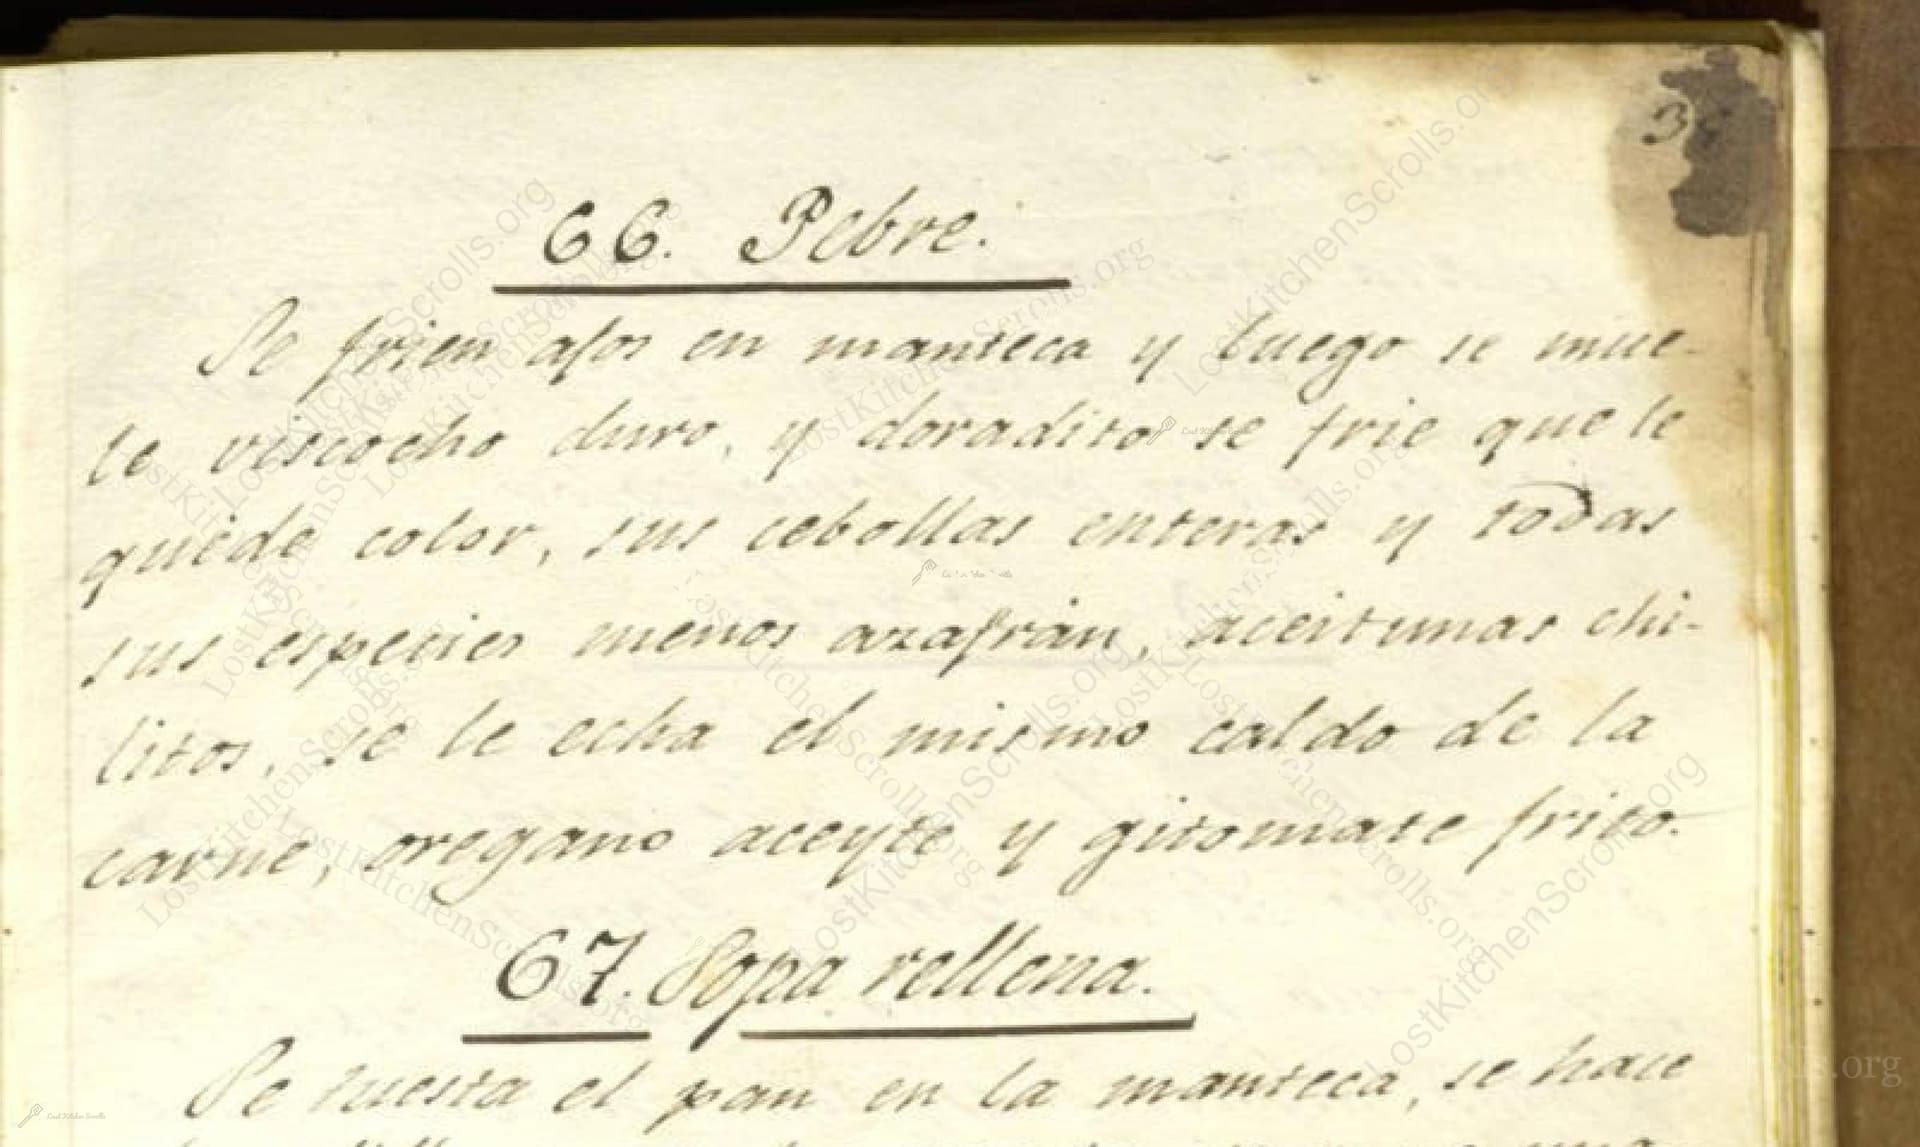 66. Pebre.
Se frien ajos en manteca y luego se mue-
le viscocho duro, y doradito se frie que le
quede color, sus cebollas enteras y todas
sus especies menos azafrán, aceitunas chi-
litos, se le echa el mismo caldo de la
carne, oregano aceyte y gitomate frito.
67. Sopa rellena.
Se tuesta el pan en la manteca, se hace